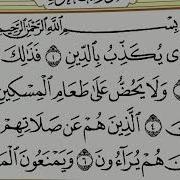 بِسْمِ ٱللَّهِ ٱلرَّحْمَٰنِ ٱلرَّحِيمِ
ى يُكَذِّبُ بِٱلدِّينِ ١ فَذَٰلِكَ
وَلَا يَحُضُّ عَلَىٰ طَعَامِ ٱلْمِسْكِينِ
٤ ٱلَّذِينَ هُمْ عَن صَلَاتِهِمْ
هُمْ يُرَآءُونَ ٦ وَيَمْنَعُونَ ٱلْمَ